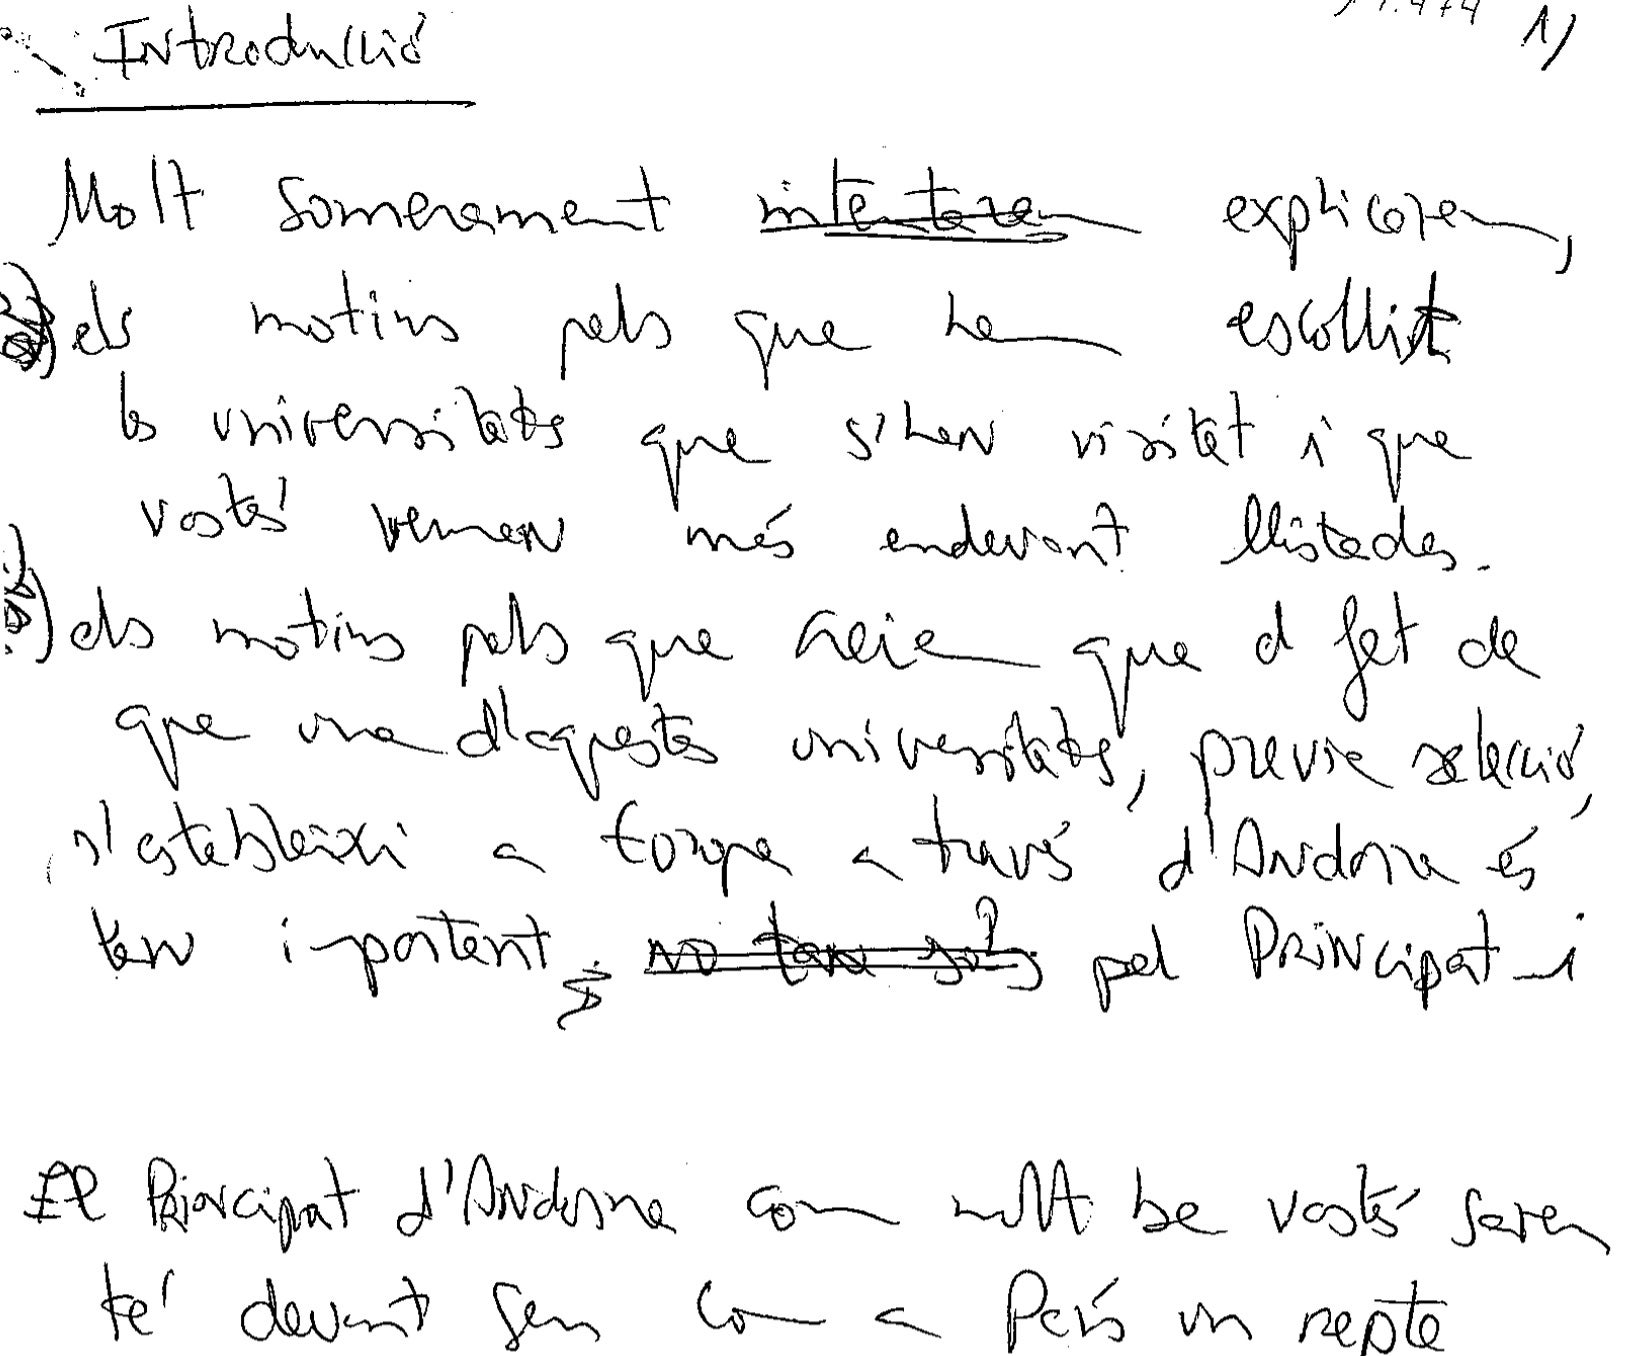 1)
Introducció
Molt somerament intentarem explicarem,
els motius pels que hem escollit
les universitats que s'han visitat i que
vostés veuran més endevant llistades.
els motius pels que creiem que el fet de
que una d'aquestes universitats, previa selecció,
s'estableixi a Europa a través d'Andorra és
tan important, no tan sols pel Principat i
El Principat d'Andorra com molt be vostés saben
té devant seu com a País un repte